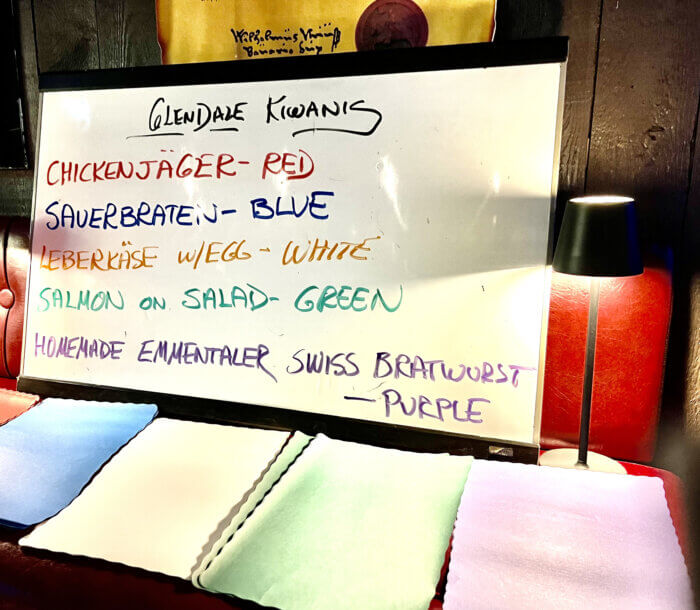 GLENDALE KIWANIS
CHICKENJÄGER- RED
SAUERBRATEN- BLUE
LEBERKÄSE W/EGG - WHITE
SALMON ON SALAD- GREEN
HOMEMADE EMMENTALER SWISS BRATWURST
- PURPLE